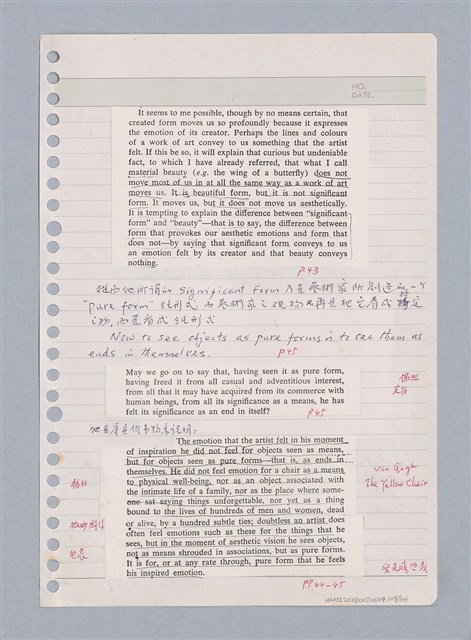 NO.
DATE.
It seems to me possible, though by no means certain, that
created form moves us so profoundly because it expresses
the emotion of its creator. Perhaps the lines and colours
of a work of art convey to us something that the artist
felt. If this be so, it will explain that curious but undeniable
fact, to which I have already referred, that what I call
material beauty (e.g. the wing of a butterfly) does not
move most of us in at all the same way as a work of art
moves us. It is beautiful form, but it is not significant
form. It moves us, but it does not move us aesthetically.
It is tempting to explain the difference between "significant
form" and "beauty"—that is to say, the difference between
form that provokes our aesthetic emotions and form that
does not—by saying that significant form conveys to us
an emotion felt by its creator and that beauty conveys
nothing.
P43
significant form 乃是藝術家所創造的一個
"pure form" 純形式
純形式
Now to see objects as pure forms is to see them as
ends in themselves. P45
May we go on to say that, having seen it as pure form,
having freed it from all casual and adventitious interest,
from all that it may have acquired from its commerce with
human beings, from all its significance as a means, he has
felt its significance as an end in itself?
P45
The emotion that the artist felt in his moment
of inspiration he did not feel for objects seen as means,
but for objects seen as pure forms—that is, as ends in
themselves. He did not feel emotion for a chair as a means
to physical well-being, nor as an object associated with
the intimate life of a family, nor as the place where some-
one sat saying things unforgettable, nor yet as a thing
bound to the lives of hundreds of men and women, dead
or alive, by a hundred subtle ties; doubtless an artist does
often feel emotions such as these for the things that he
sees, but in the moment of aesthetic vision he sees objects,
not as means shrouded in associations, but as pure forms.
It is for, or at any rate through, pure form that he feels
his inspired emotion.
Van Gogh
The Yellow Chair
PP44-45